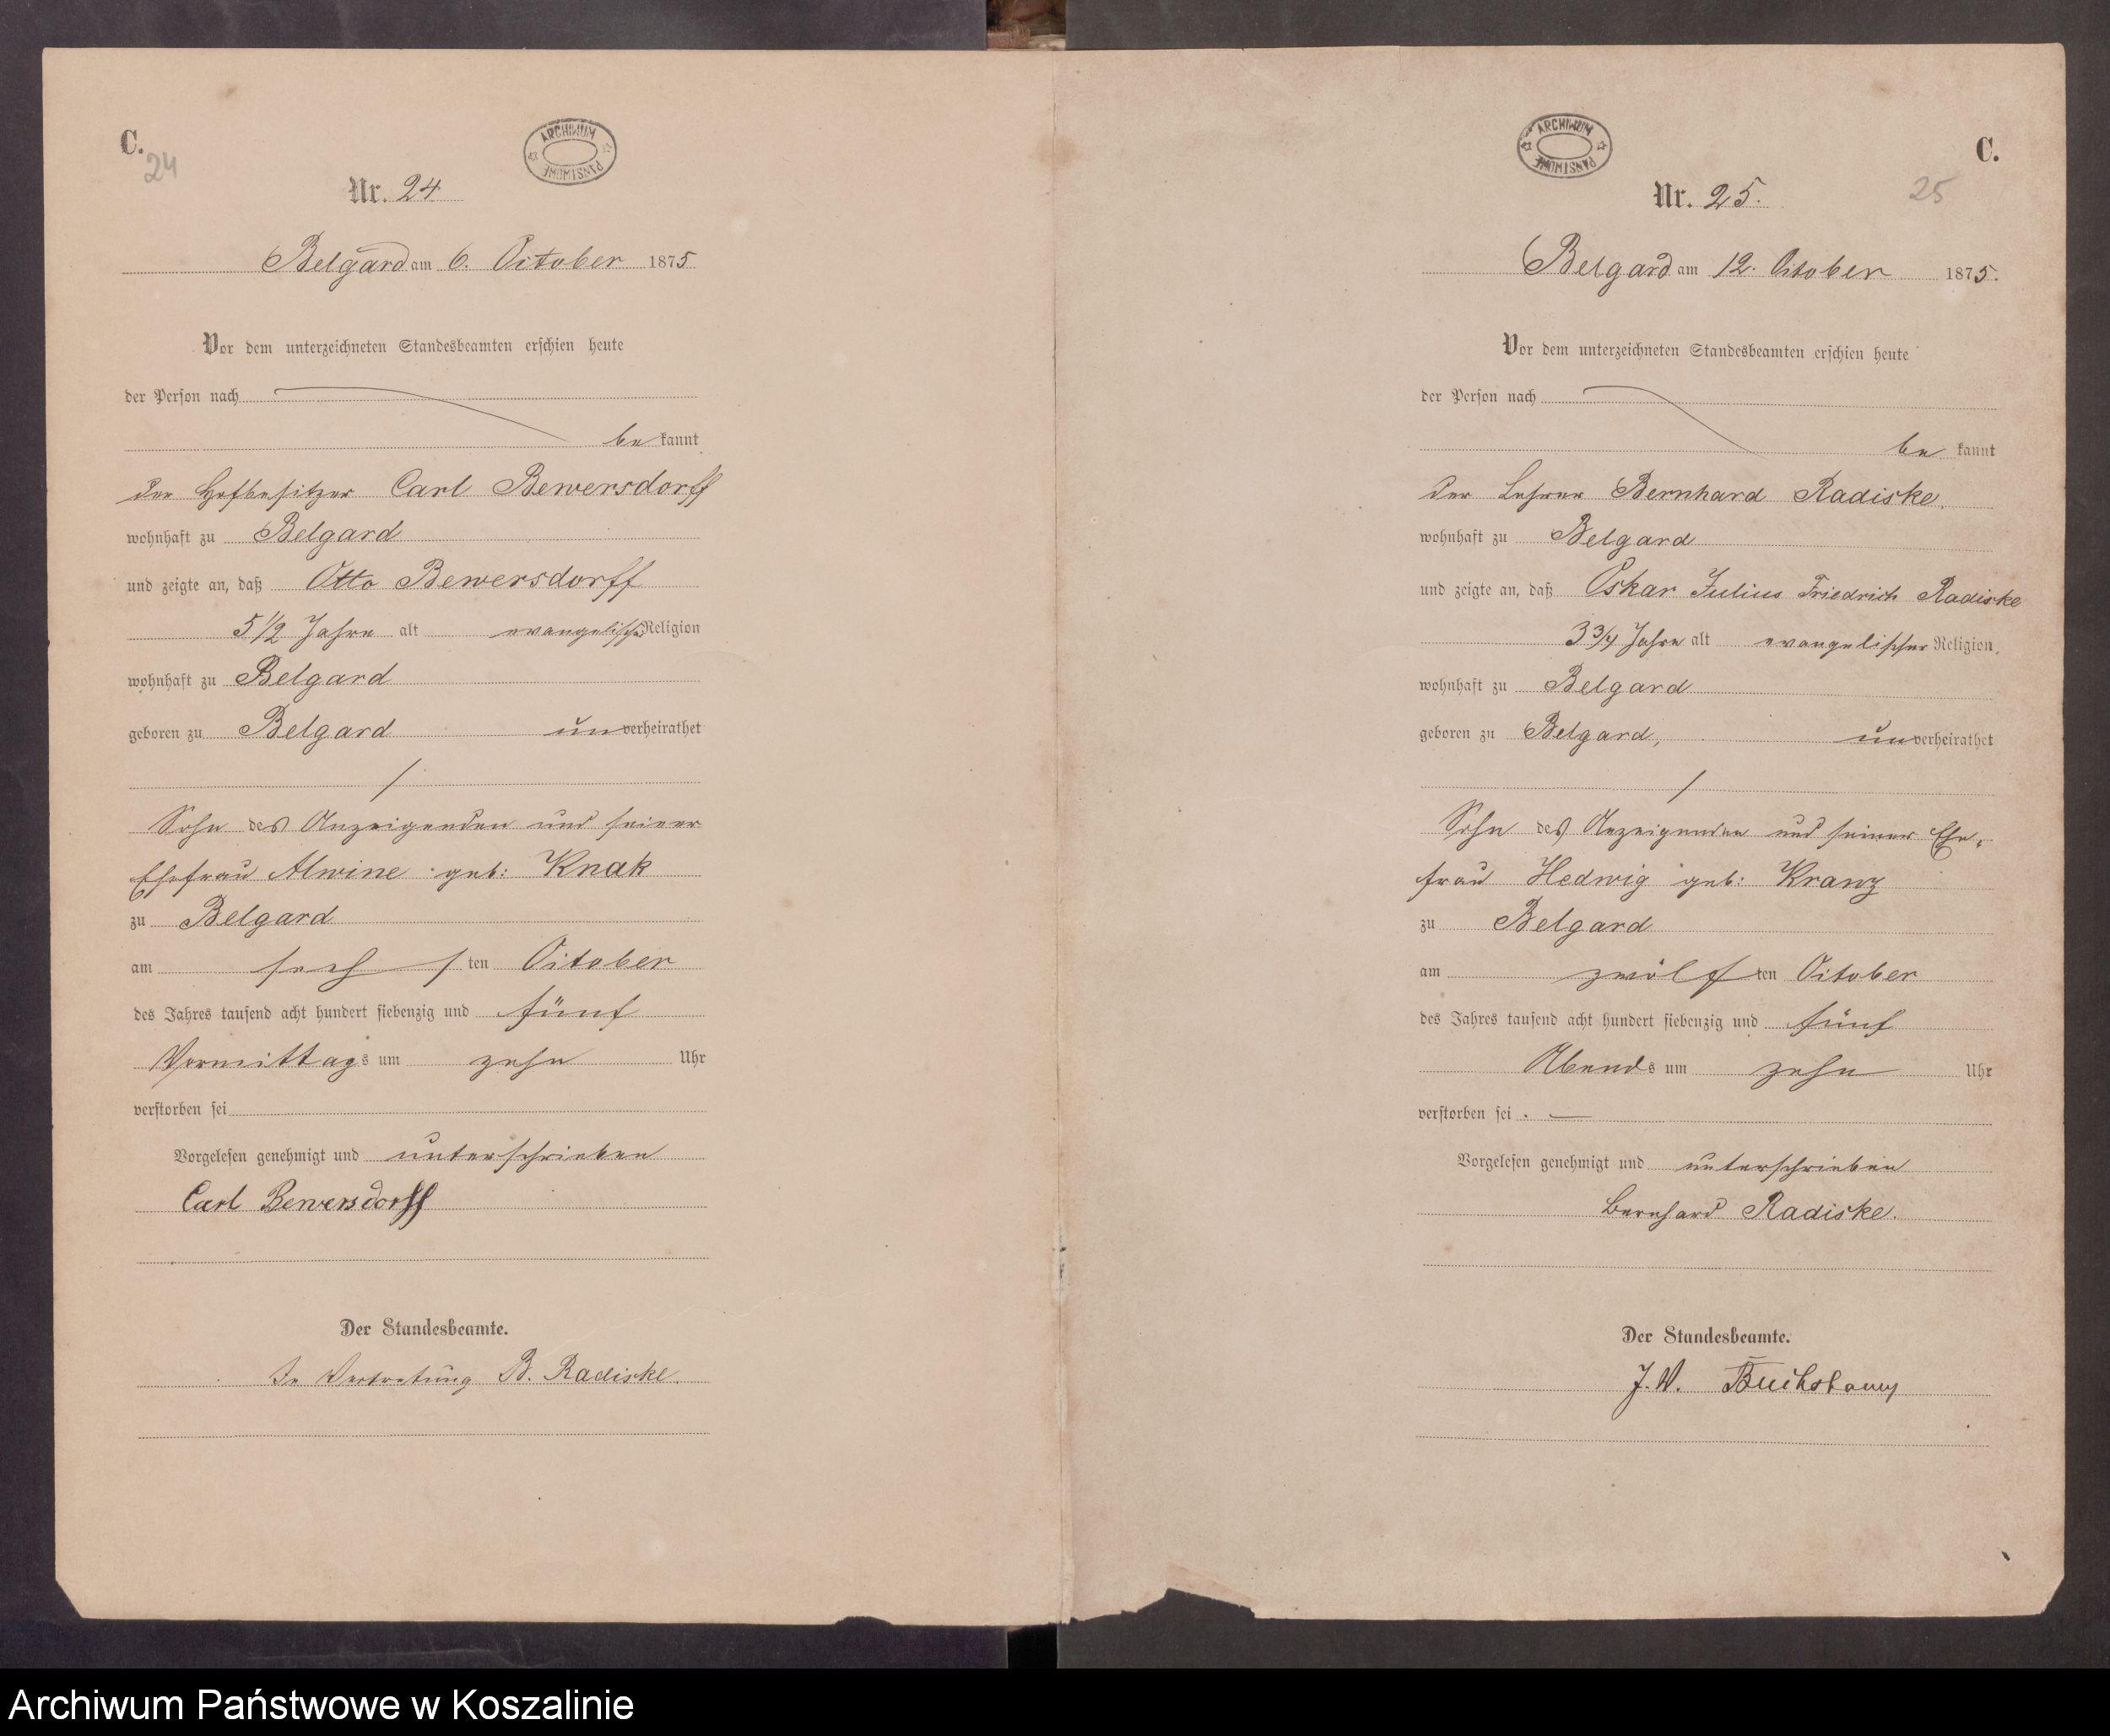 C.
24
ARCHIWUM PAŃSTWOWE
Nr. 24
Belgard am 6. October 1875
Vor dem unterzeichneten Standesbeamten erschien heute
der Person nach
be kannt
der Hofbesitzer Carl Bewersdorff
wohnhaft zu Belgard
und zeigte an, daß Otto Bewersdorff
5 1/2 Jahre alt evangelischer Religion
wohnhaft zu Belgard
geboren zu Belgard unverheirathet
Sohn des Anzeigenden und seiner
Ehefrau Alwine geb: Knak
zu Belgard
am sechsten October
des Jahres tausend acht hundert siebenzig und fünf
Vormittags um zehn Uhr
verstorben sei
Vorgelesen genehmigt und unterschrieben
Carl Bewersdorff
Der Standesbeamte.
In Vertretung B. Radiske.
ARCHIWUM PAŃSTWOWE
C.
Nr. 25.
25
Belgard am 12. October 1875.
Vor dem unterzeichneten Standesbeamten erschien heute
der Person nach
be kannt
der Lehrer Bernhard Radiske.
wohnhaft zu Belgard
und zeigte an, daß Oskar Julius Friedrich Radiske
3 3/4 Jahre alt evangelischer Religion,
wohnhaft zu Belgard
geboren zu Belgard, unverheirathet
Sohn des Anzeigenden und seiner Ehe-
frau Hedwig geb: Kranz
zu Belgard
am zwölften October
des Jahres tausend acht hundert siebenzig und fünf
Abends um zehn Uhr
verstorben sei. —
Vorgelesen genehmigt und unterschrieben
Bernhard Radiske.
Der Standesbeamte.
J. V.
Archiwum Państwowe w Koszalinie